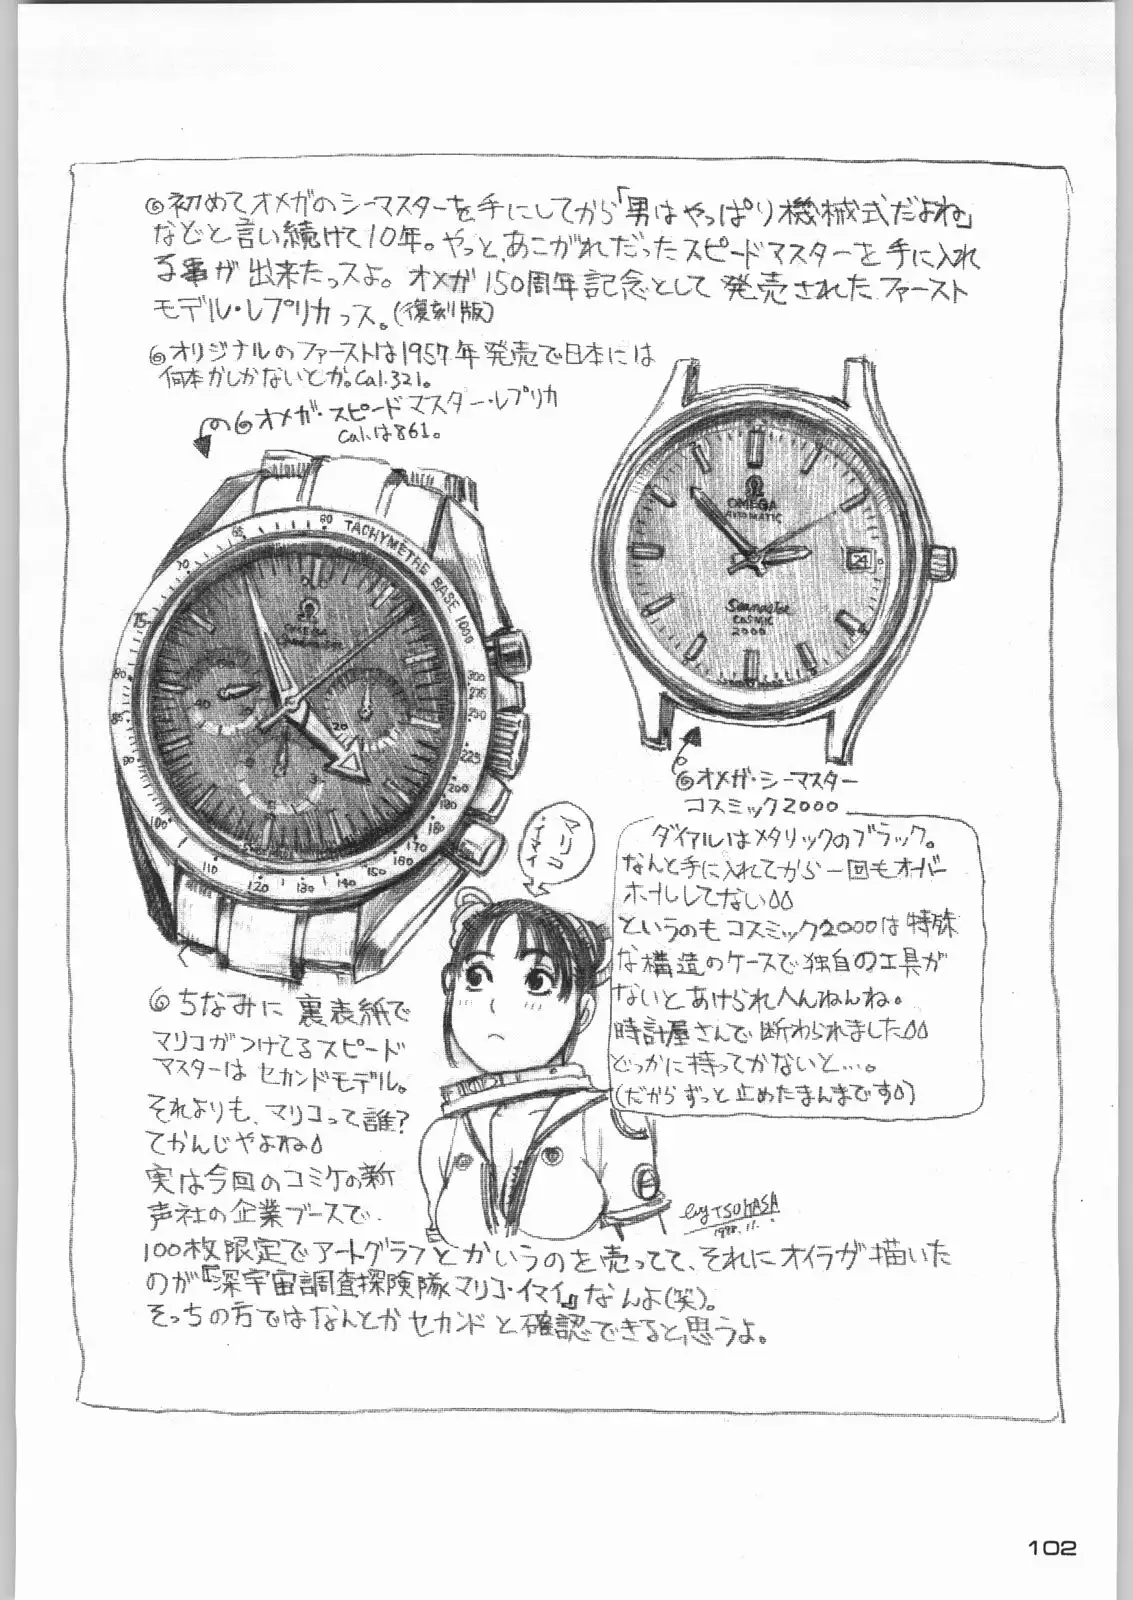 ◎初めてオメガのシーマスターを手にしてから「男はやっぱり機械式だよね」
などと言い続けて10年。やっと、あこがれだったスピードマスターを手に入れ
る事が出来たっスよ。オメガ150周年記念として発売されたファースト
モデル・レプリカっス。(復刻版)
◎オリジナルのファーストは1957年発売で日本には
何本かしかないとか。Cal.321。
◎オメガ・スピードマスター・レプリカ
Cal.は861。
TACHYMETRE BASE 1000
60
65
70
75
80
85
90
100
110
120
130
140
150
160
170
180
200
225
250
275
300
OMEGA
Speedmaster
OMEGA
AUTOMATIC
24
Seamaster
COSMIC
2000
◎オメガ・シーマスター
コスミック2000
ダイアルはメタリックのブラック。
なんと手に入れてから一回もオーバー
ホールしてない
というのもコスミック2000は特殊
な構造のケースで独自の工具が
ないとあけられへんねんね。
時計屋さんで断わられました
どっかに持ってかないと…。
(だからずっと止めたまんまです)
マリコ
・イマイ
◎ちなみに裏表紙で
マリコがつけてるスピード
マスターはセカンドモデル。
それよりも、マリコって誰?
てかんじやよね
実は今回のコミケの新
声社の企業ブースで、
100枚限定でアートグラフとかいうのを売ってて、それにオイラが描いた
のが『深宇宙調査探険隊マリコ・イマイ』なんよ(笑)。
そっちの方ではなんとかセカンドと確認できると思うよ。
by TSUKASA
1998.11.
102